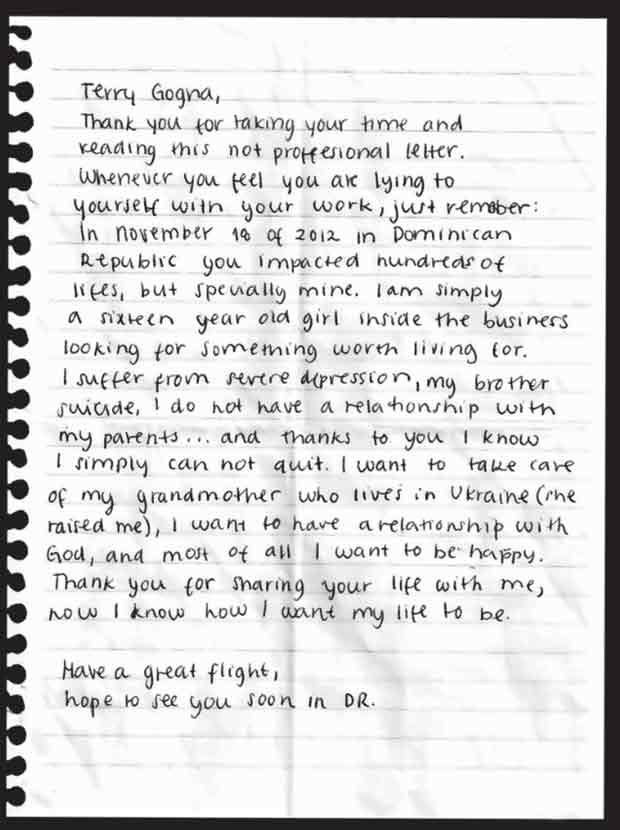 Terry Gogna,
Thank you for taking your time and
reading this not proffesional letter.
Whenever you feel you are lying to
yourself with your work, just remember:
In november 18 of 2012 in Dominican
Republic you impacted hundreds of
lifes, but specially mine. I am simply
a sixteen year old girl inside the business
looking for something worth living for.
I suffer from severe depression, my brother
suicide, I do not have a relationship with
my parents... and thanks to you I know
I simply can not quit. I want to take care
of my grandmother who lives in Ukraine (she
raised me), I want to have a relationship with
God, and most of all I want to be happy.
Thank you for sharing your life with me,
now I know how I want my life to be.
Have a great flight,
hope to see you soon in DR.